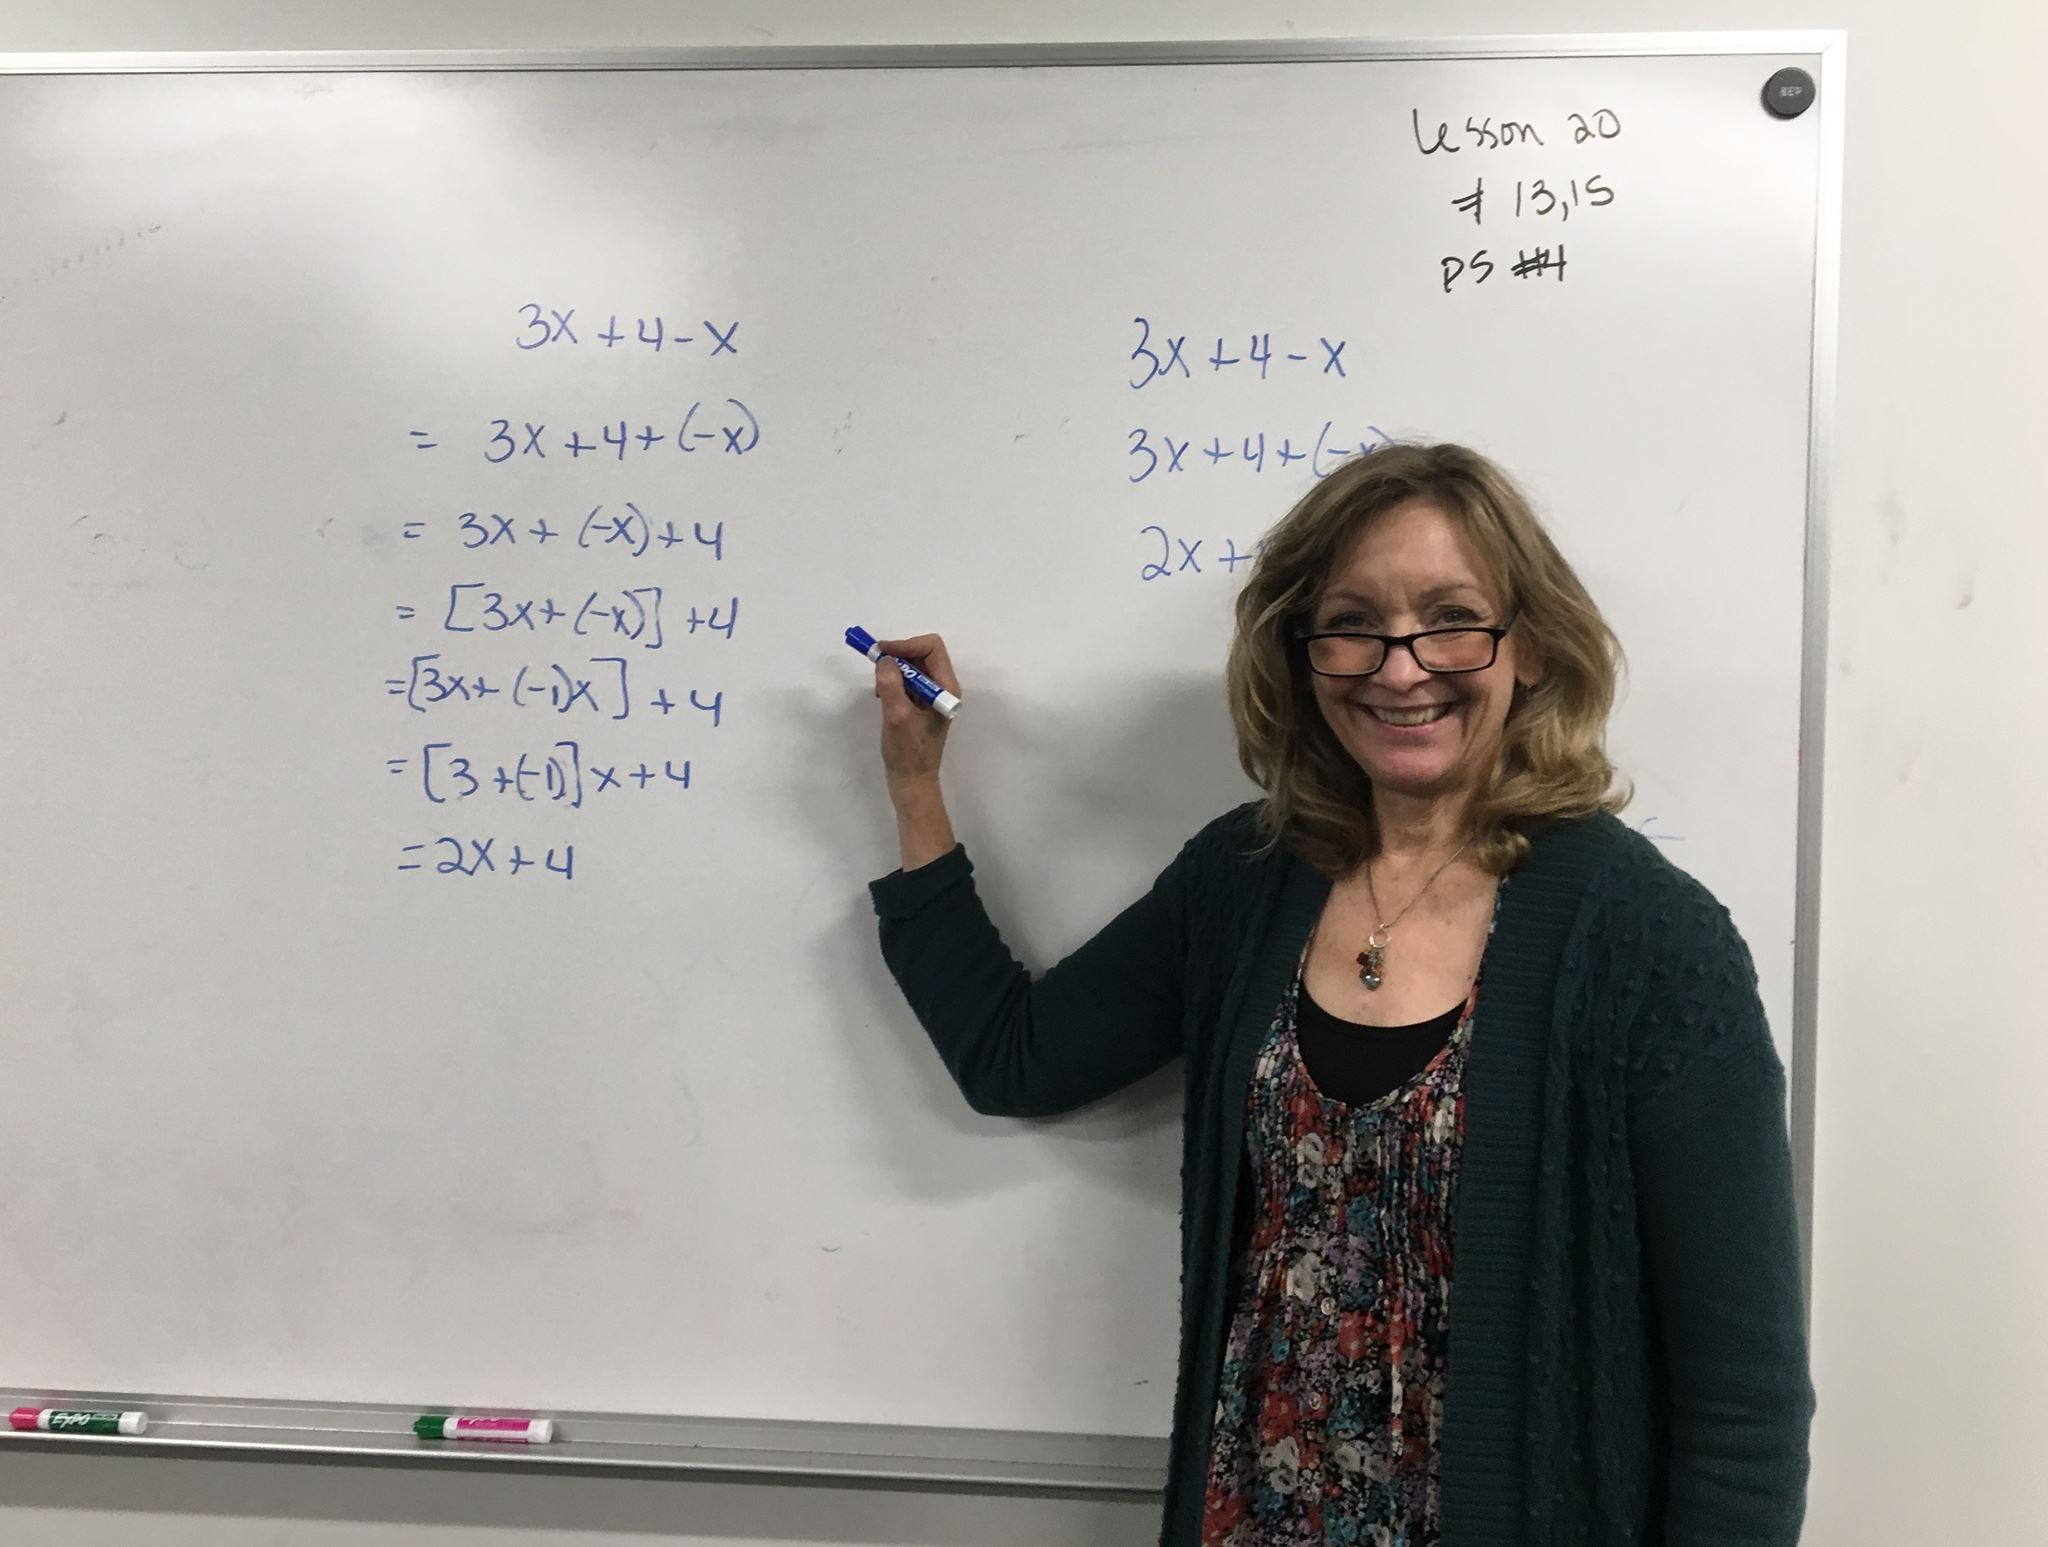 Lesson 20
# 13,15
PS #4
3x + 4 - x
= 3x + 4 + (-x)
= 3x + (-x) + 4
= [3x + (-x)] + 4
= [3x + (-1)x] + 4
= [3 + (-1)]x + 4
= 2x + 4
3x + 4 - x
3x + 4 + (-x
2x +
EXPO